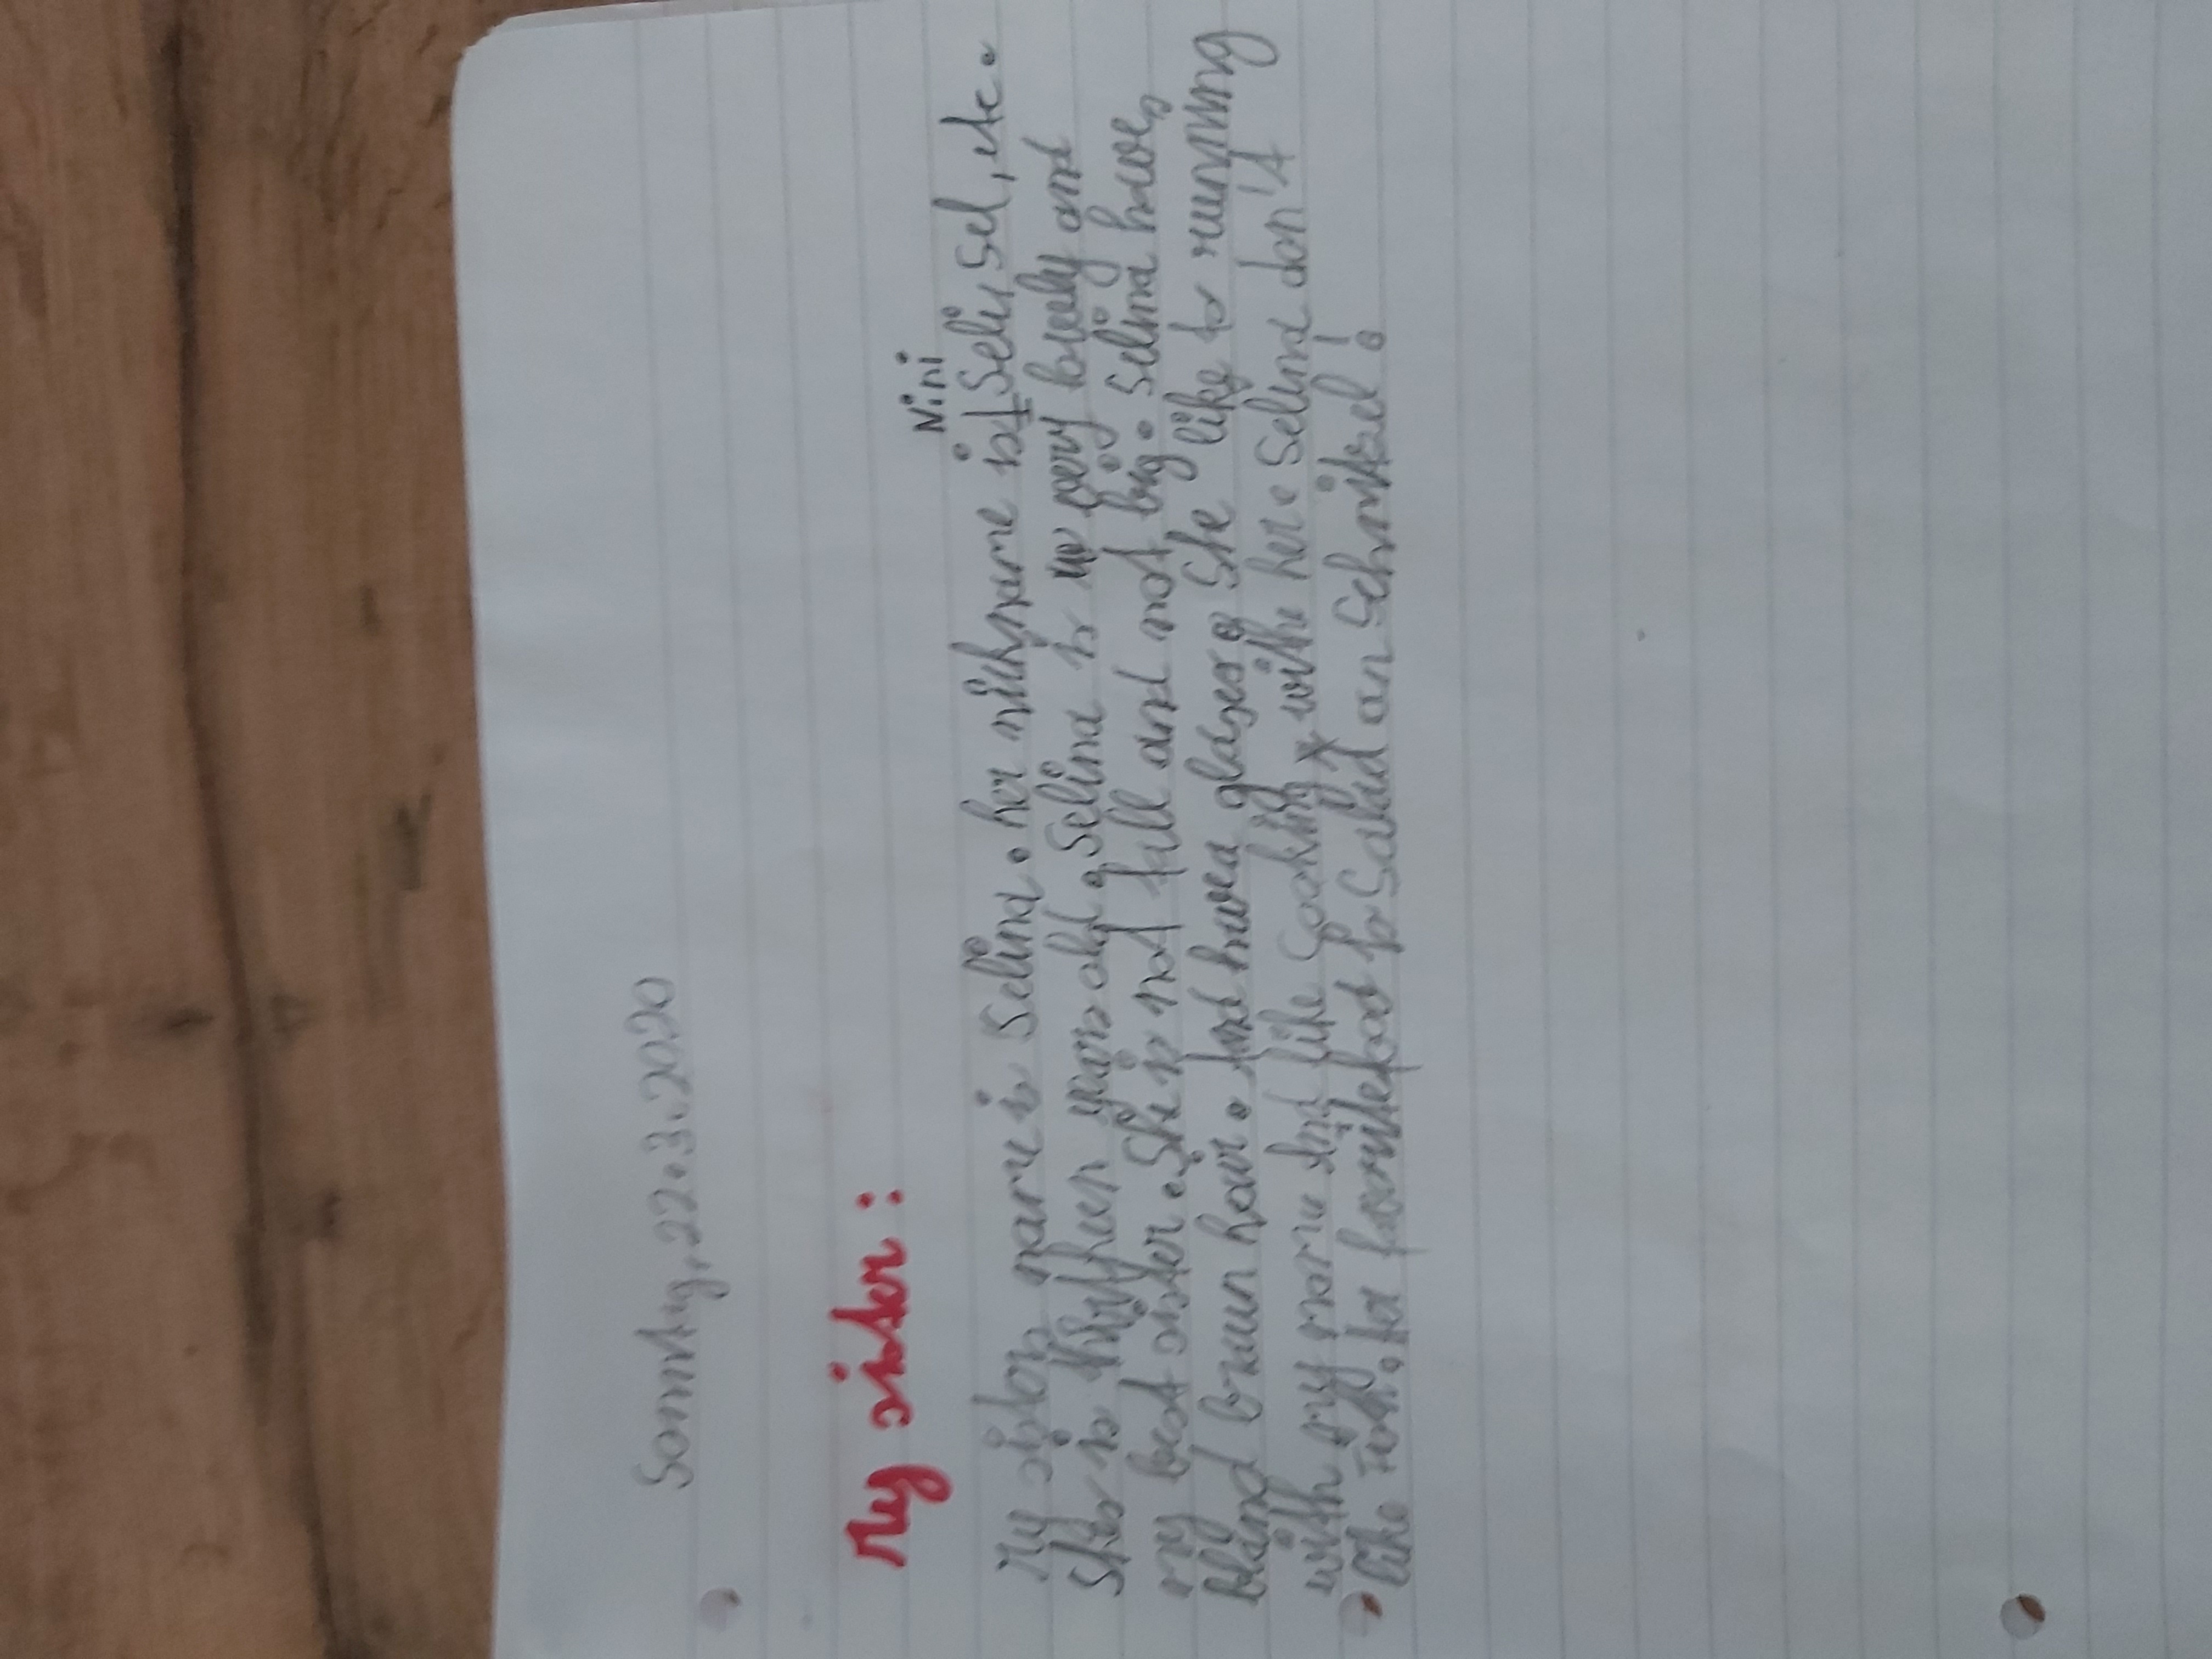 Sonntag, 22.3.2020
My sister:
Nini
My sister name is Selina. her nickname is Seli, Sel, etc.
She is thirteen years old. Selina is very lovely and
my best sister. She is not tall and not big. Selina have
bland braun hair. and have a glases. She like to running
with my mom and like cooking with her. Selina don't
like fish. favoritefood is Salad an Schnitzel!